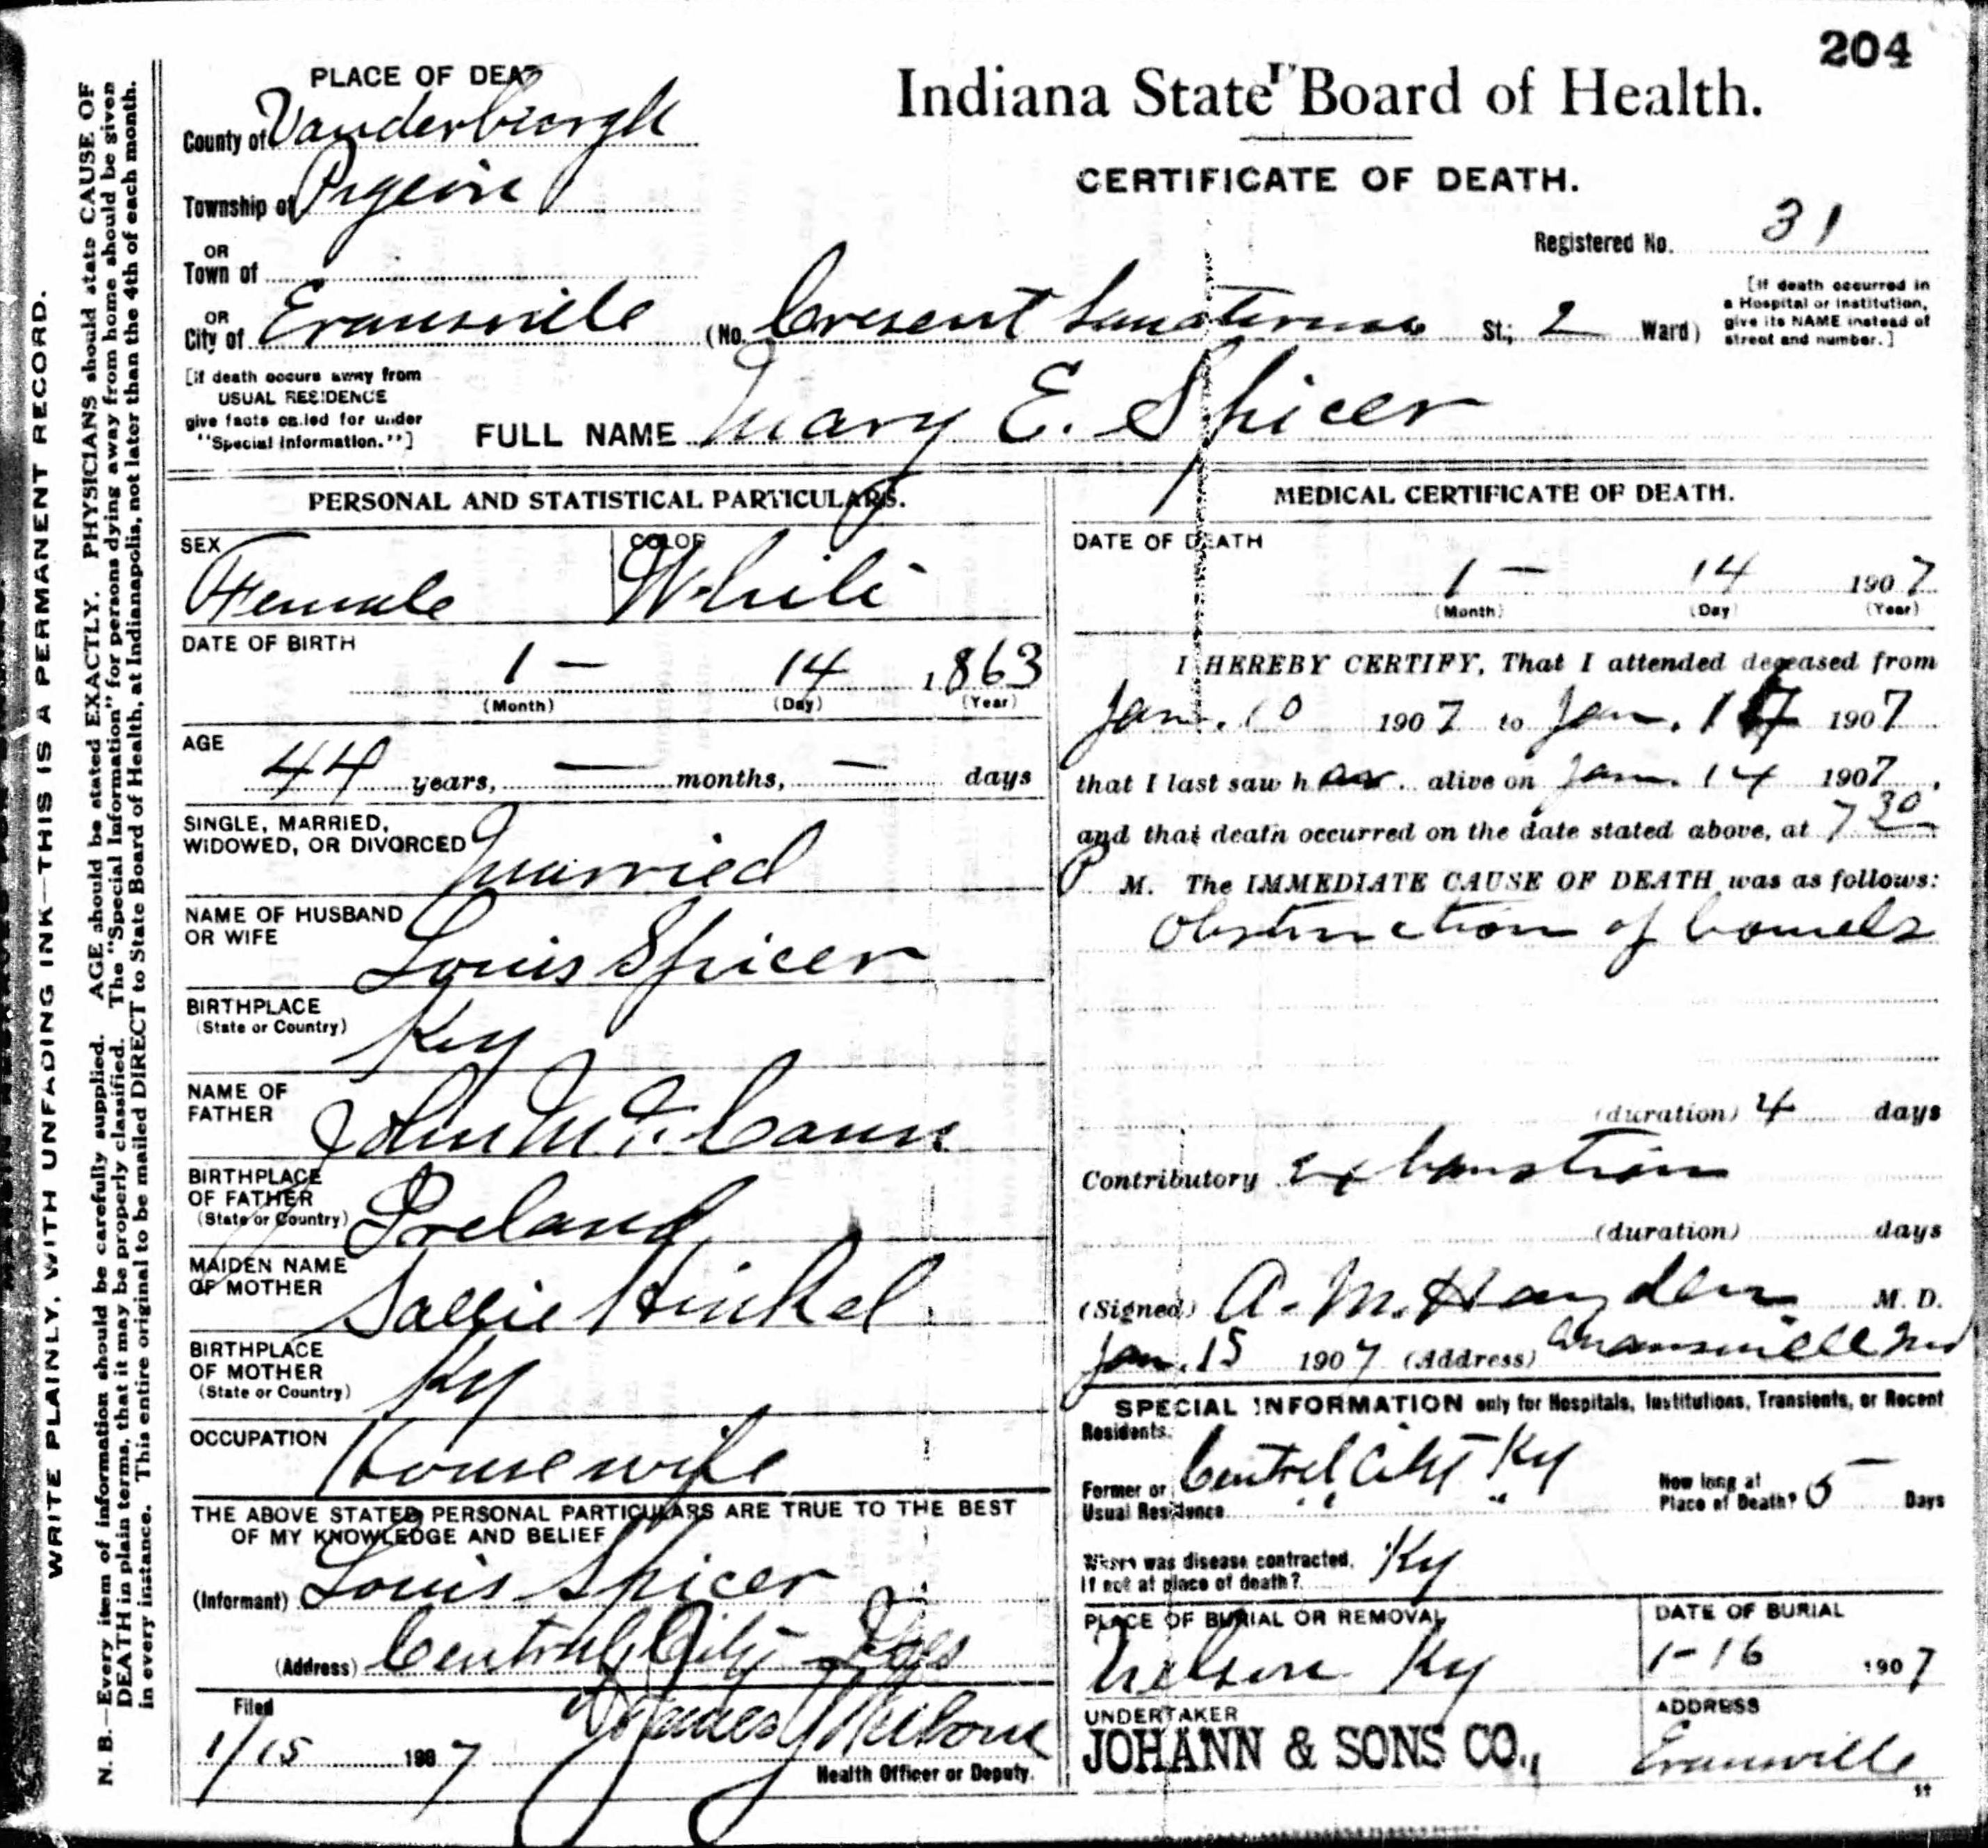 204
PLACE OF DEATH
Indiana State Board of Health.
County of Vanderburgh
CERTIFICATE OF DEATH.
Township of Pigeon
Registered No. 31
OR
Town of
OR
City of Evansville (No. Cresent Sanaterium St.; 2 Ward)
[If death occurred in
a Hospital or institution,
give its NAME instead of
street and number.]
[If death occurs away from
USUAL RESIDENCE
give facts called for under
"Special Information."]
FULL NAME Mary E. Spicer
PERSONAL AND STATISTICAL PARTICULARS.
SEX
Female
COLOR
White
DATE OF BIRTH
1 — 14 1863
(Month) (Day) (Year)
AGE
44 years, — months, — days
SINGLE, MARRIED,
WIDOWED, OR DIVORCED
Married
NAME OF HUSBAND
OR WIFE
Louis Spicer
BIRTHPLACE
(State or Country)
Ky
NAME OF
FATHER
John Mc. Cann
BIRTHPLACE
OF FATHER
(State or Country)
Ireland
MAIDEN NAME
OF MOTHER
Sallie Hinkel
BIRTHPLACE
OF MOTHER
(State or Country)
Ky
OCCUPATION
Housewife
THE ABOVE STATED PERSONAL PARTICULARS ARE TRUE TO THE BEST
OF MY KNOWLEDGE AND BELIEF
(Informant) Louis Spicer
(Address) Central City
Filed
1/15 1907
Health Officer or Deputy.
MEDICAL CERTIFICATE OF DEATH.
DATE OF DEATH
1 — 14 1907
(Month) (Day) (Year)
I HEREBY CERTIFY, That I attended deceased from
Jan. 10 1907 to Jan. 1907
that I last saw her alive on Jan. 14 1907,
and that death occurred on the date stated above, at 7 30
P M. The IMMEDIATE CAUSE OF DEATH was as follows:
Obstruction of bowels
(duration) 4 days
Contributory exhaustion
(duration) days
(Signed) A. M. Hayden M. D.
Jan. 15 1907 (Address) Evansville Ind
SPECIAL INFORMATION only for Hospitals, Institutions, Transients, or Recent
Residents.
Former or
Usual Residence Central City Ky
How long at
Place of Death? 5 Days
" "
Where was disease contracted,
If not at place of death? Ky
PLACE OF BURIAL OR REMOVAL
Nelson Ky
DATE OF BURIAL
1-16 1907
UNDERTAKER
JOHANN & SONS CO.,
ADDRESS
Evansville
11
WRITE PLAINLY, WITH UNFADING INK—THIS IS A PERMANENT RECORD.
N. B.—Every item of information should be carefully supplied. AGE should be stated EXACTLY. PHYSICIANS should state CAUSE OF
DEATH in plain terms, that it may be properly classified. The "Special Information" for persons dying away from home should be given
in every instance. This entire original to be mailed DIRECT to State Board of Health, at Indianapolis, not later than the 4th of each month.